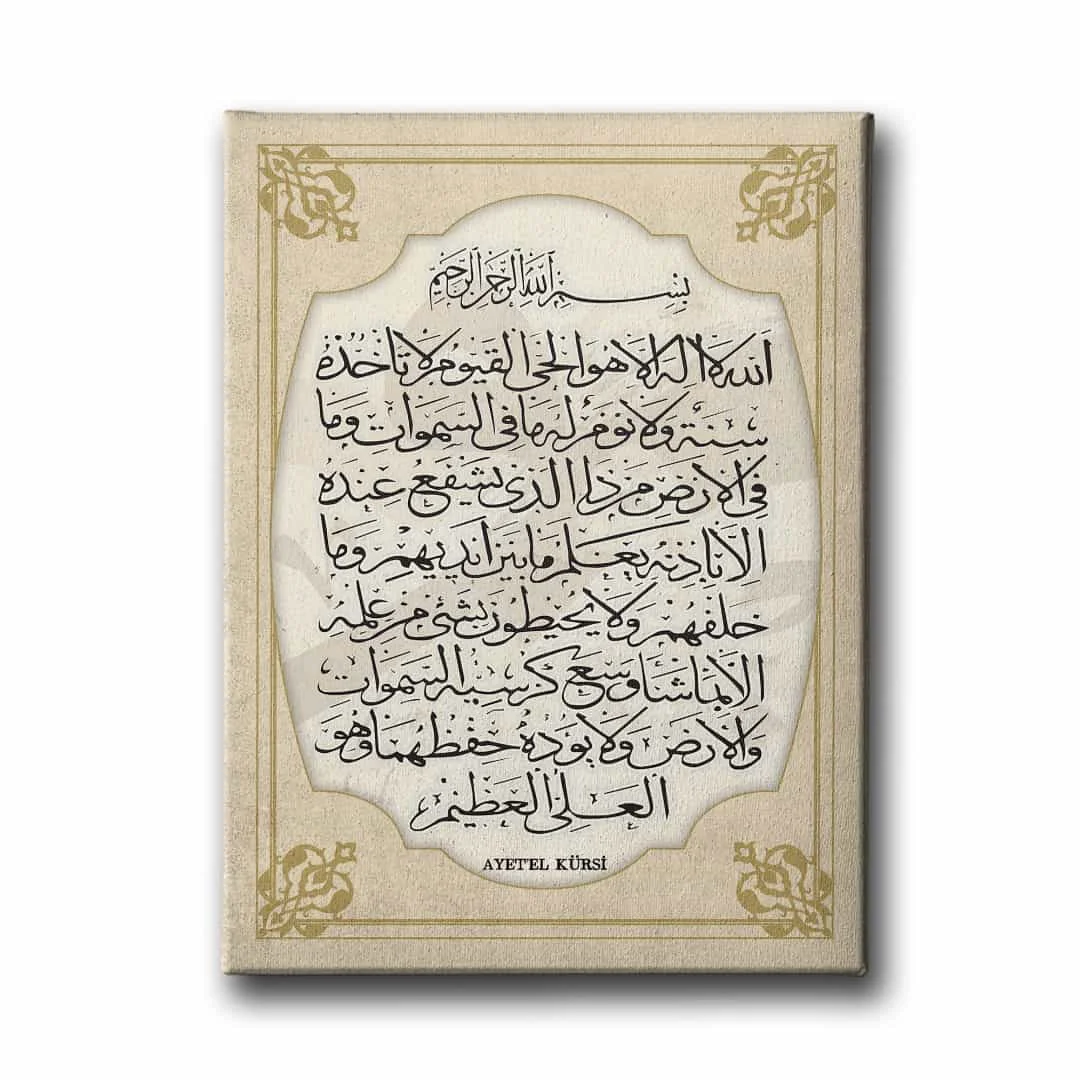 بِسْمِ اللّٰهِ الرَّحْمٰنِ الرَّحِيمِ
اَللّٰه لا اله الا هو الحى القيوم لا تاخذه
سنة ولا نوم له ما فى السموات وما
فى الارض من ذا الذى يشفع عنده
الا باذنه يعلم ما بين ايديهم وما
خلفهم ولا يحيطون بشئ من علمه
الا بما شا وسع كرسيه السموات
والارض ولا يؤده حفظهما وهو
العلى العظيم
AYET'EL KÜRSİ